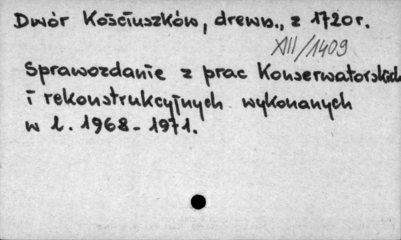 Dwór Kościuszków, drewn., z 1720 r.
XII/1409
Sprawozdanie z prac Konserwatorskich
i rekonstrukcyjnych wykonanych
w l. 1968 - 1971.